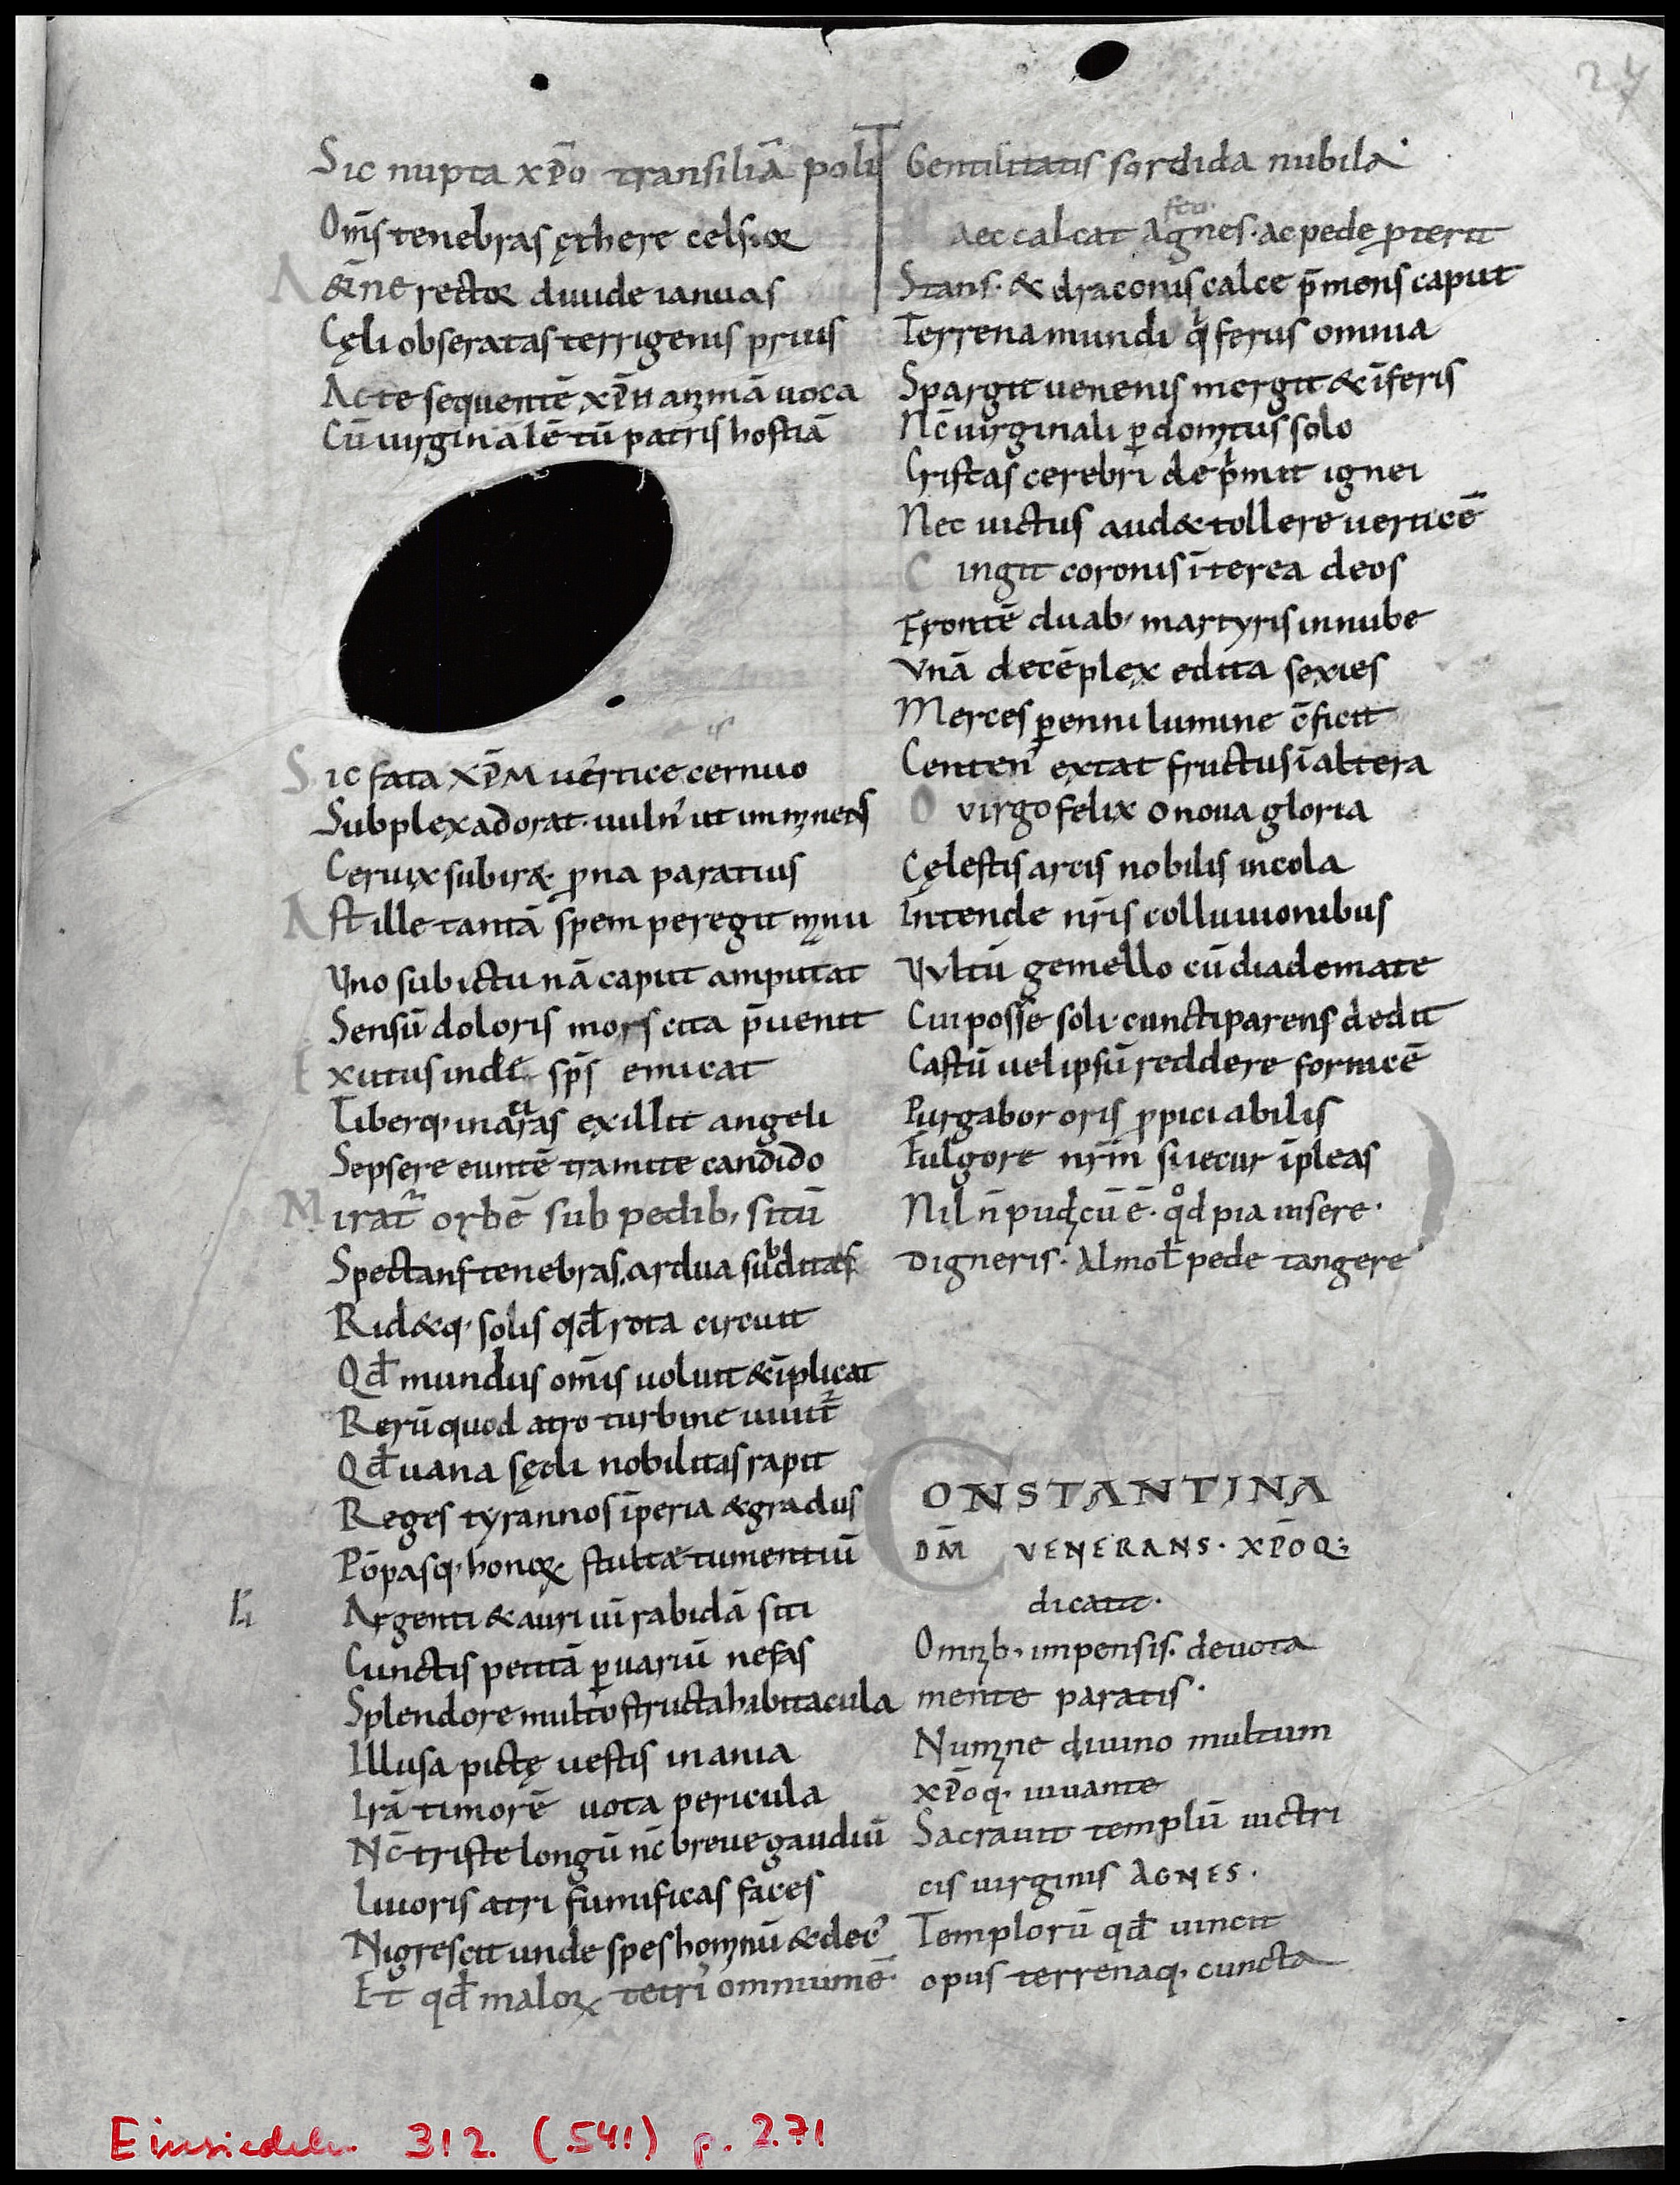 24
Sic nupta xp̄o transiliā poli
Om̄s tenebras ęthere celsior
Aet̄ne rector diuide ianuas
Cęli obseratas terrigenis prius
Ac te sequentē xp̄ŋ animā uoca
Cū uirginālē tū patris hostiā
Sic fata xp̄m uertice cernuo
Subplex adorat. uuln' ut imminens
Ceruix subiret prona paratius
Ast ille tantā spem peregit manu
Uno sub ictu nā caput amputat
Sensū doloris mors cita p̄uenit
Exutus inde sp̄s emicat
Liberq· in auras exillit angeli
Sepsere euntē tramite candido
Mirat᷑ orbē sub pedib· sitū
Spectans tenebras ardua subditas
Ridetq· solis qđ rota circuit
Qđ mundus om̄is uoluit & īplicat
Rerū quod atro turbine uiuit᷑
Qđ uana sęcli nobilitas rapit
Reges tyrannos īperia & gradus
Pōpasq· honoꝝ stulta tumentiū
Argenti & auri uī rabidā siti
Cunctis petitā ꝑ uariū nefas
Splendore multo structa habitacula
Illusa pictę uestis inania
Irā timorē uota pericula
Nc̄ triste longū nc̄ breue gaudiū
Liuoris atri fumificas faces
Nigrescit unde spes hominū & dec'
Et qđ maloꝝ tetri' omnium ē·
Gentilitatis sordida nubila·
Haec calcat Agnes· ac pede ꝓterit
Stans· & draconis calce p̄mens caput
Terrena mundi qi ferus omnia
Spargit uenenis mergit & īferis
Nc̄ uirginali ꝑdomitus solo
Cristas cerebri deprimit ignei
Nec uictus audet tollere uerticē
Cingit coronis īterea deos
Frontē duab· martyris innube
Unā decēplex edita sexies
Merces ꝑenni lumine c̄ficit
Centen' extat fructus ī altera
O virgo felix o noua gloria
Cęlestis arcis nobilis incola
Intende nr̄is colluuionibus
Vultū gemello cū diademate
Cui posse soli cunctiparens dedit
Castū uel ipsū reddere fornicē
Purgabor oris ꝓpiciabilis
Fulgore nr̄m si iecur īpleas
Nil n̄ pudicū ē· qd pia uisere·
Digneris· Almo ł pede tangere
CONSTANTINA
DM̄ VENERANS· XP̄OQ:
dicatit·
Omnib· impensis· deuota
mente paratis·
Numine diuino multum
xp̄oq· iuuante
Sacrauit templū uictri
cis uirginis AGNES·
Templorū qđ uincit
opus terrenaq· cuncta
Einsiedeln 312. (541) p. 271